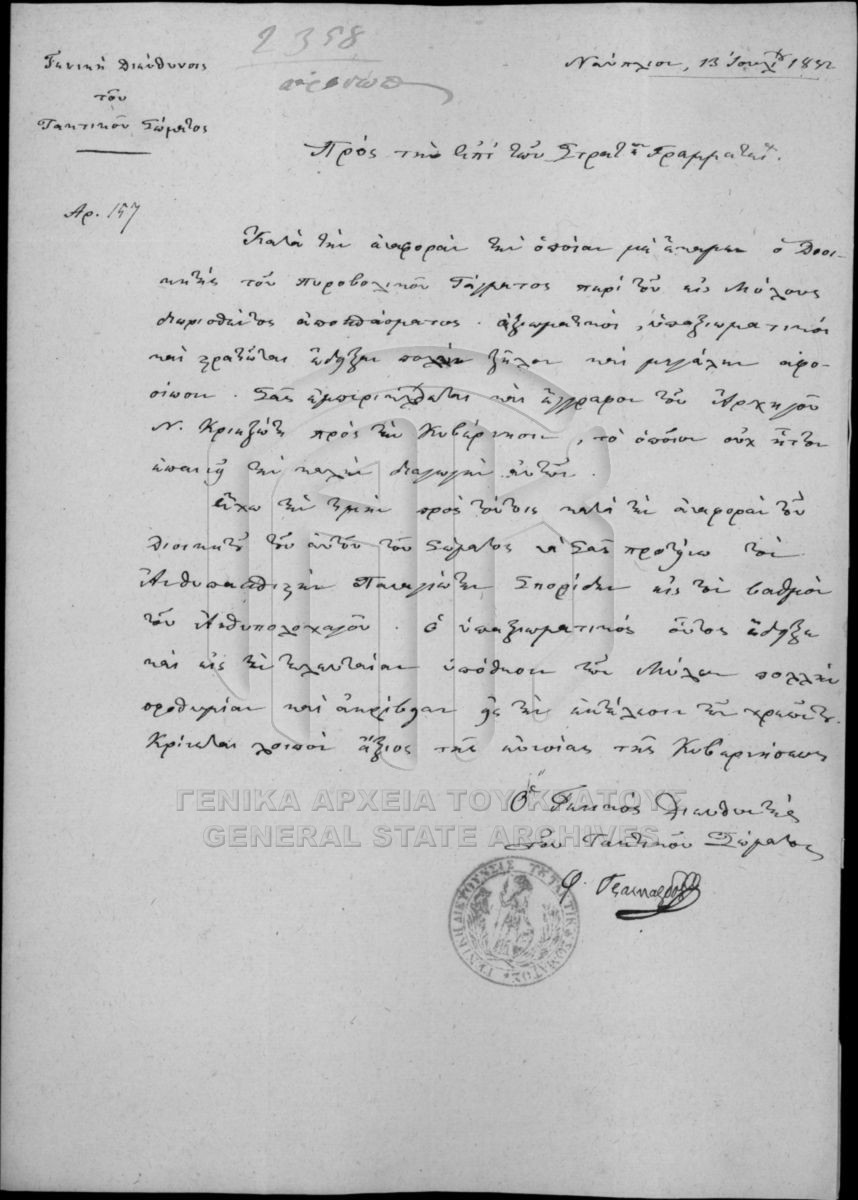 2358
Γενική Διεύθυνσις
τοῦ
Τακτικοῦ Σώματος
Ναύπλιον, 13 Ἰουλίου 1832
Πρὸς τὴν ἐπὶ τῶν Στρατ. Γραμματεί.
Αρ. 157
Κατὰ τὴν ἀναφορὰν τὴν ὁποίαν μὲ ἔκαμεν ὁ Διοι-
κητὴς τοῦ πυροβολικοῦ Τάγματος περὶ τοῦ εἰς Μύλους
διορισθέντος ἀποσπάσματος. ἀξιωματικοὶ, ὑπαξιωματικοὶ
καὶ στρατιῶται ἔδειξαν πολὺν ζῆλον καὶ μεγάλην ἀφο-
σίωσιν. Σᾶς ἐμπερικλείεται καὶ ἔγγραφον τοῦ Ἀρχηγοῦ
Ν. Κριεζώτη πρὸς τὴν Κυβέρνησιν, τὸ ὁποῖον οὐχ ἧττον
ἐπαινεῖ τὴν καλὴν διαγωγὴν αὐτῶν.
ἔχω τὴν τιμὴν πρὸς τούτοις κατὰ τὴν ἀναφορὰν τοῦ
διοικητοῦ τοῦ αὐτοῦ τοῦ Σώματος νὰ Σᾶς προτείνω τὸν
Ἀνθυπασπιστὴν Παναγιώτην Σπορίδην εἰς τὸν βαθμὸν
τοῦ Ἀνθυπολοχαγοῦ. ὁ ὑπαξιωματικὸς οὗτος ἔδειξε
καὶ εἰς τὴν τελευταίαν ὑπόθεσιν τῶν Μύλων πολλὴν
προθυμίαν καὶ ἀκρίβειαν εἰς τὴν ἐκτέλεσιν τῶν χρεῶν τ.
Κρίνεται λοιπὸν ἄξιος τῆς εὐνοίας τῆς Κυβερνήσεως
Ὁ Γενικὸς Διευθυντὴς
τοῦ Τακτικοῦ Σώματος
ΓΕΝΙΚΑ ΑΡΧΕΙΑ ΤΟΥ ΚΡΑΤΟΥΣ
GENERAL STATE ARCHIVES
ΓΕΝΙΚΗ ΔΙΕΥΘΥΝΣΙΣ ΤΟΥ ΤΑΚΤΙΚΟΥ ΣΩΜΑΤΟΣ